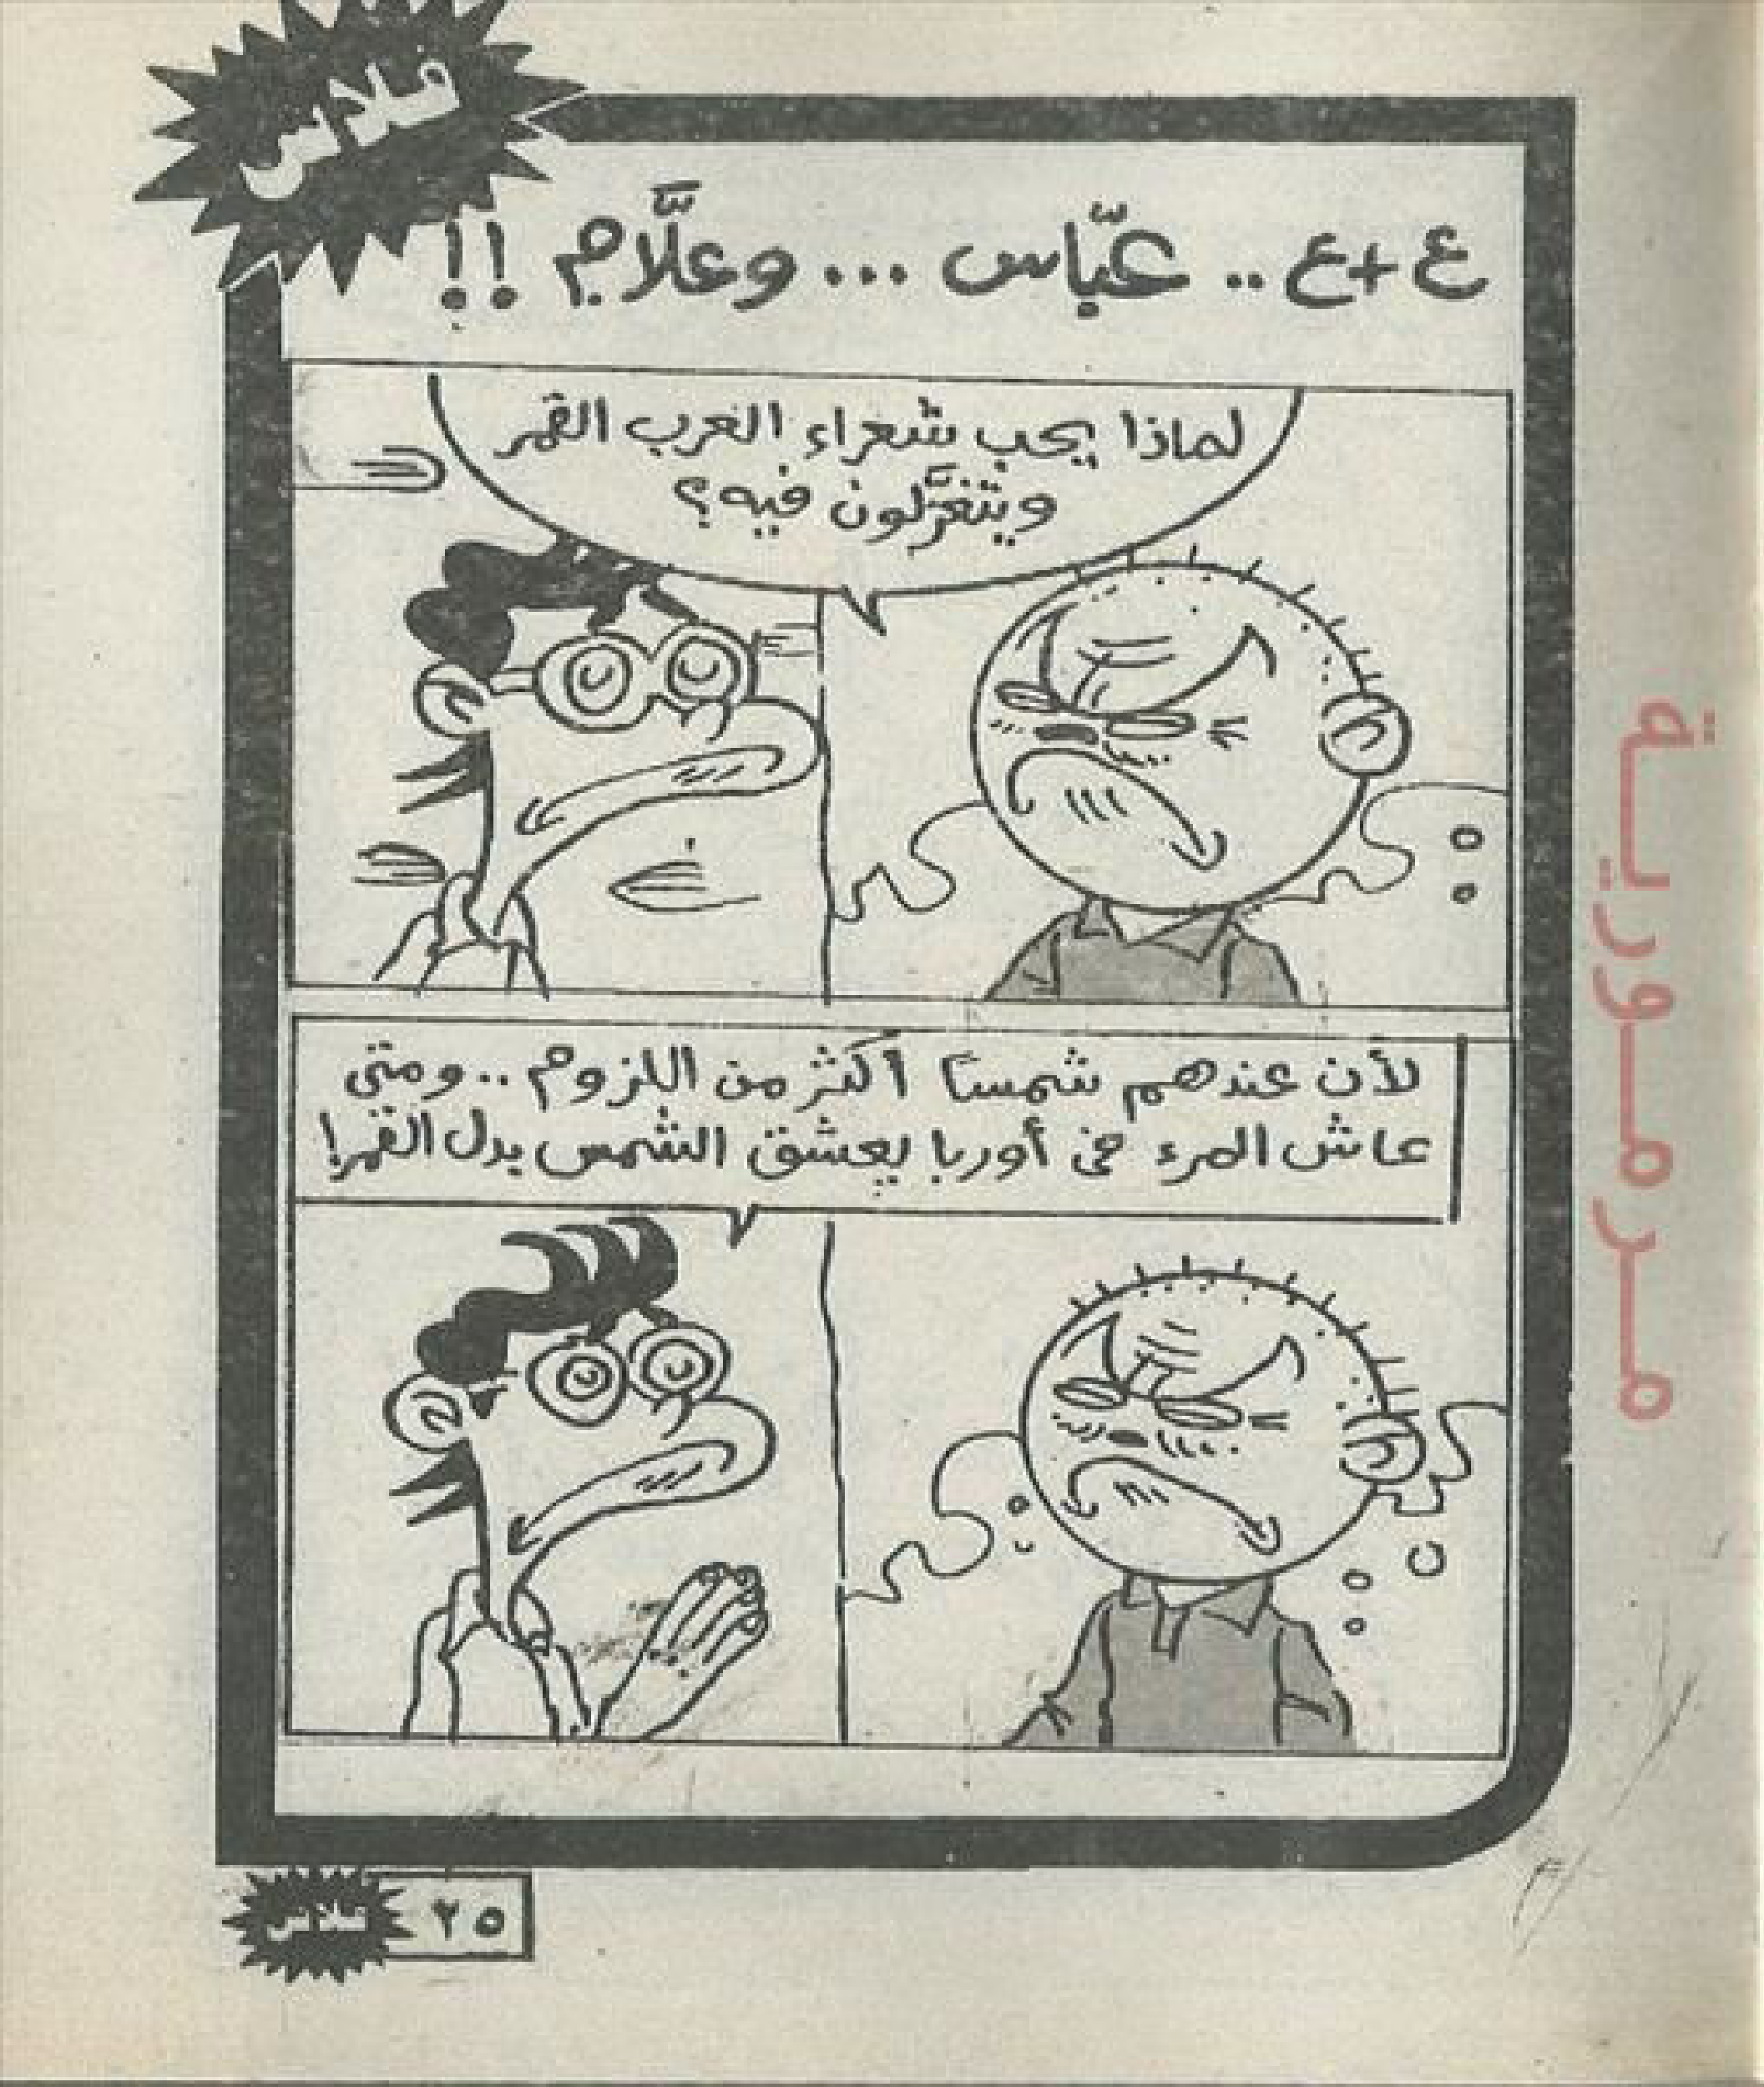 فلاش
ع+ع .. عبّاس ... وعلَّام !!
لماذا يحب شعراء العرب القمر
ويتغزَّلون فيه؟
لأن عندهم شمسًا أكثر من اللزوم .. ومتى
عاش المرء في أوربا يعشق الشمس بدل القمر!
مرمورية
فلاش ٢٥